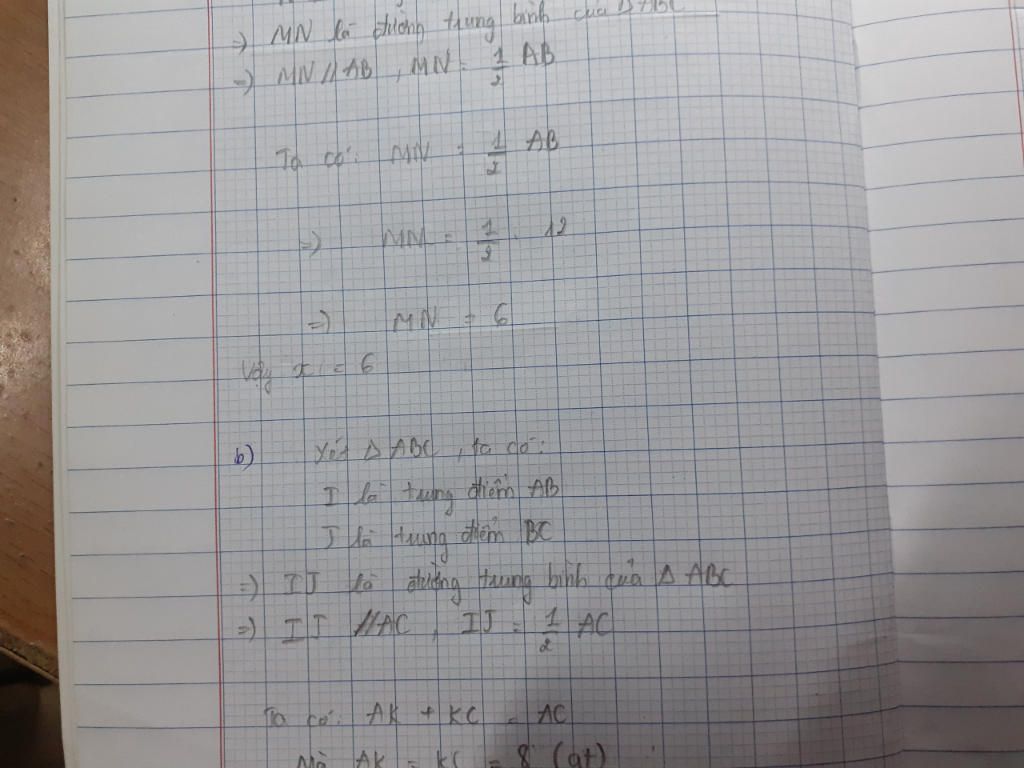 =) MN là đường trung bình của Δ ABC
=) MN // AB , MN = 1/2 AB
Ta có: MN = 1/2 AB
=) MN = 1/2 . 12
=) MN = 6
Vậy x = 6
b) Xét Δ ABC , ta có:
I là trung điểm AB
J là trung điểm BC
=) IJ là đường trung bình của Δ ABC
=) IJ // AC , IJ = 1/2 AC
Ta có: AK + KC = AC
Mà AK = KC = 8 (gt)